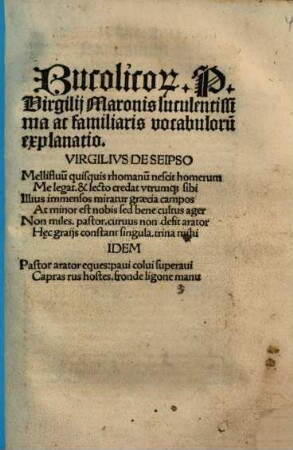 Bucolicoꝝ. P.
Virgilij Maronis luculentissi
ma ac familiaris vocabulorū
explanatio.
VIRGILIVS DE SEIPSO
Mellifluū quisquis rhomanū nescit homerum
Me legat. & lecto credat vtrumqꝫ sibi
Illius immensos miratur græcia campos
At minor est nobis sed bene cultus ager
Non miles. pastor, curuus non desit arator
Hęc graijs constant singula. trina mihi
IDEM
Pastor arator eques: paui colui superaui
Capras rus hostes. fronde ligone manu